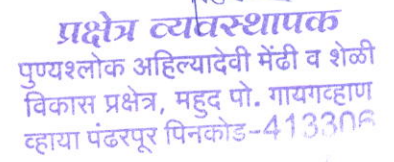 प्रक्षेत्र व्यवस्थापक
पुण्यश्लोक अहिल्यादेवी मेंढी व शेळी
विकास प्रक्षेत्र, महुद पो. गायगव्हाण
व्हाया पंढरपूर पिनकोड-413306